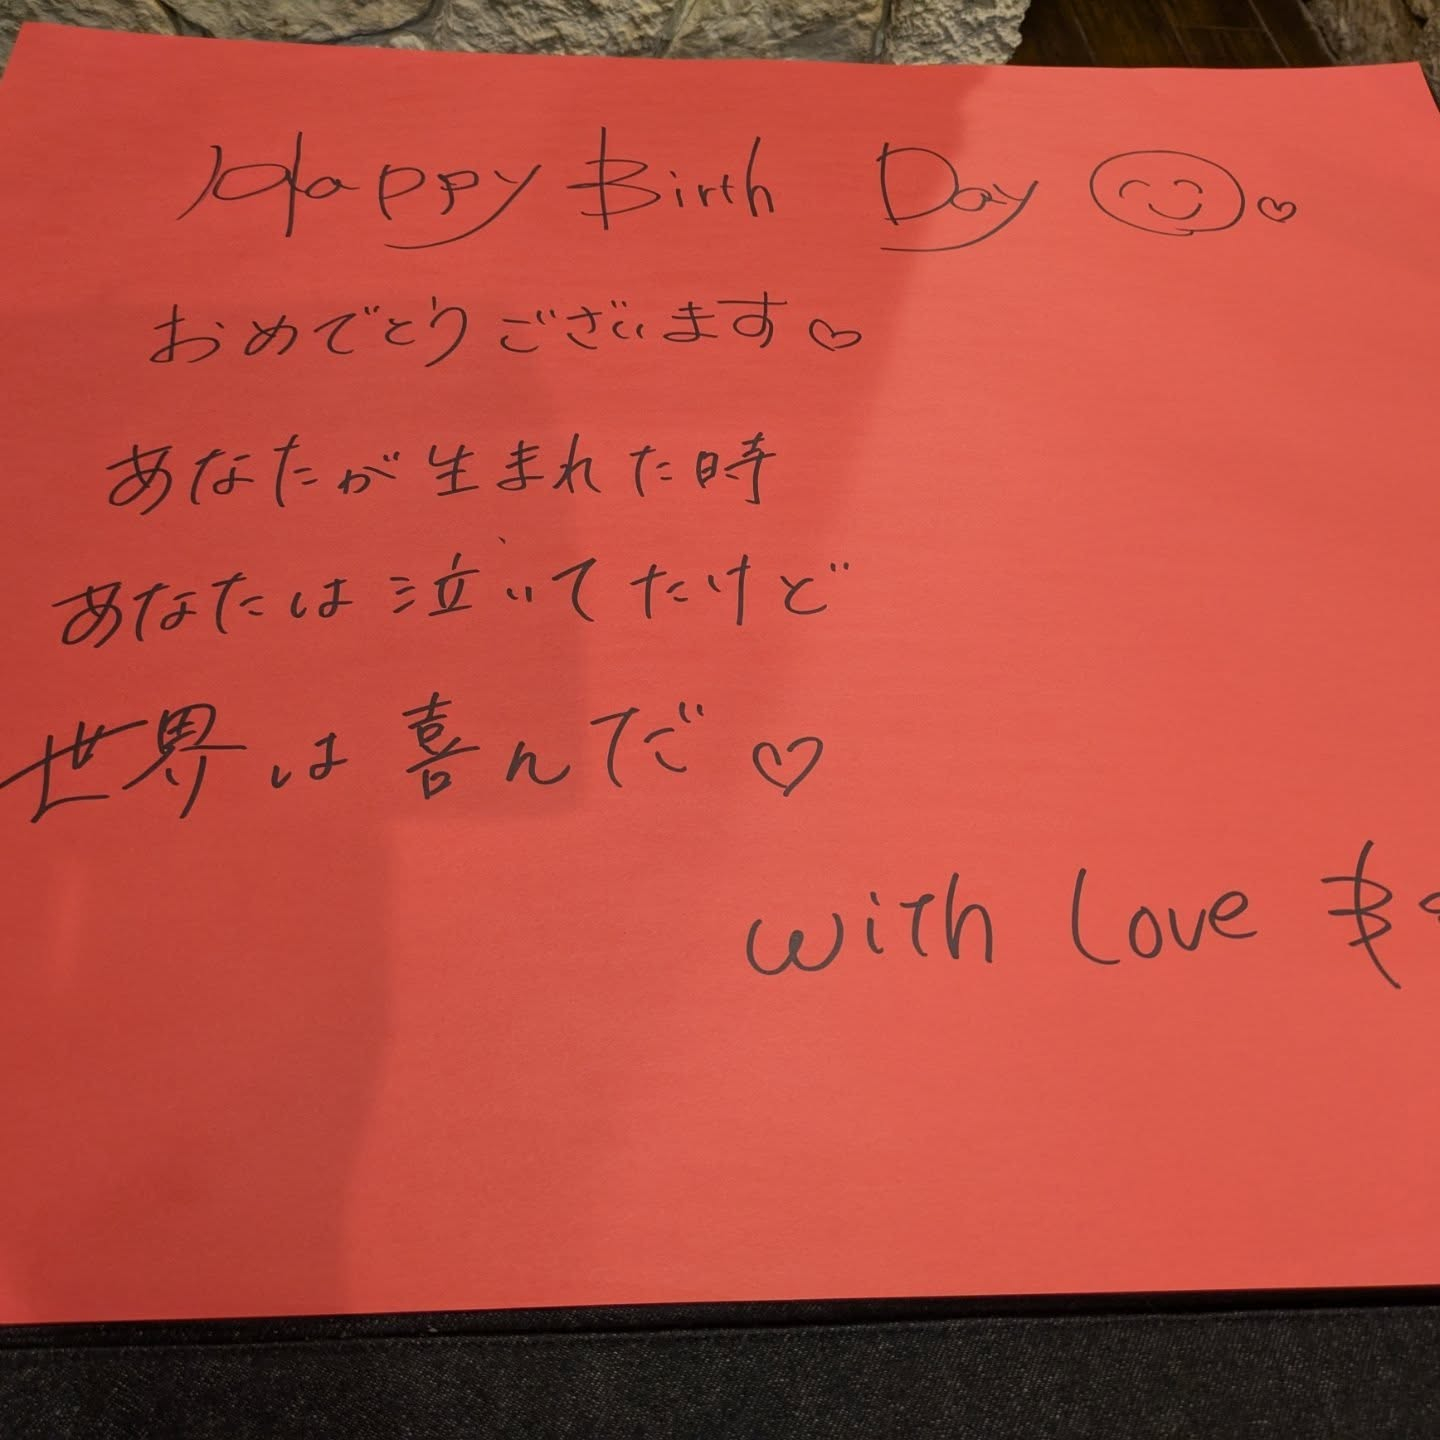 Happy Birth Day
おめでとうございます♡
あなたが生まれた時
あなたは泣いてたけど
世界は喜んだ♡
with Love